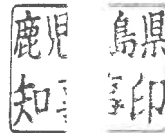 鹿児島県
知印